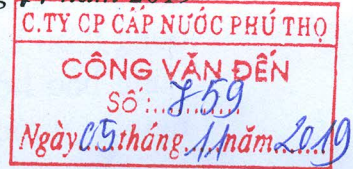 C.TY CP CẤP NƯỚC PHÚ THỌ
CÔNG VĂN ĐẾN
Số:...759...
Ngày 05 tháng 11 năm 2019